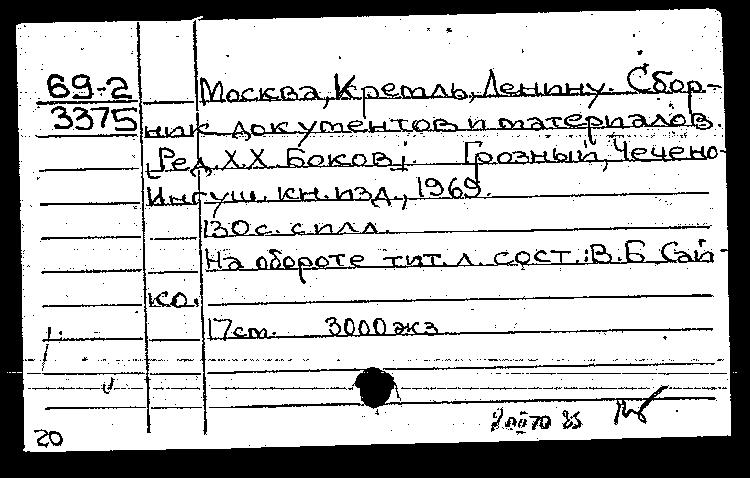 69-2 Москва, Кремль, Ленину. Сбор-
3375 ник документов и материалов.
[Ред. Х.Х. Боков]. Грозный, Чечено-
Ингуш. кн. изд., 1969.
130 с. с илл.
На обороте тит. л. сост.: В.Б Сай-
ко.
17 см. 3000 экз
20